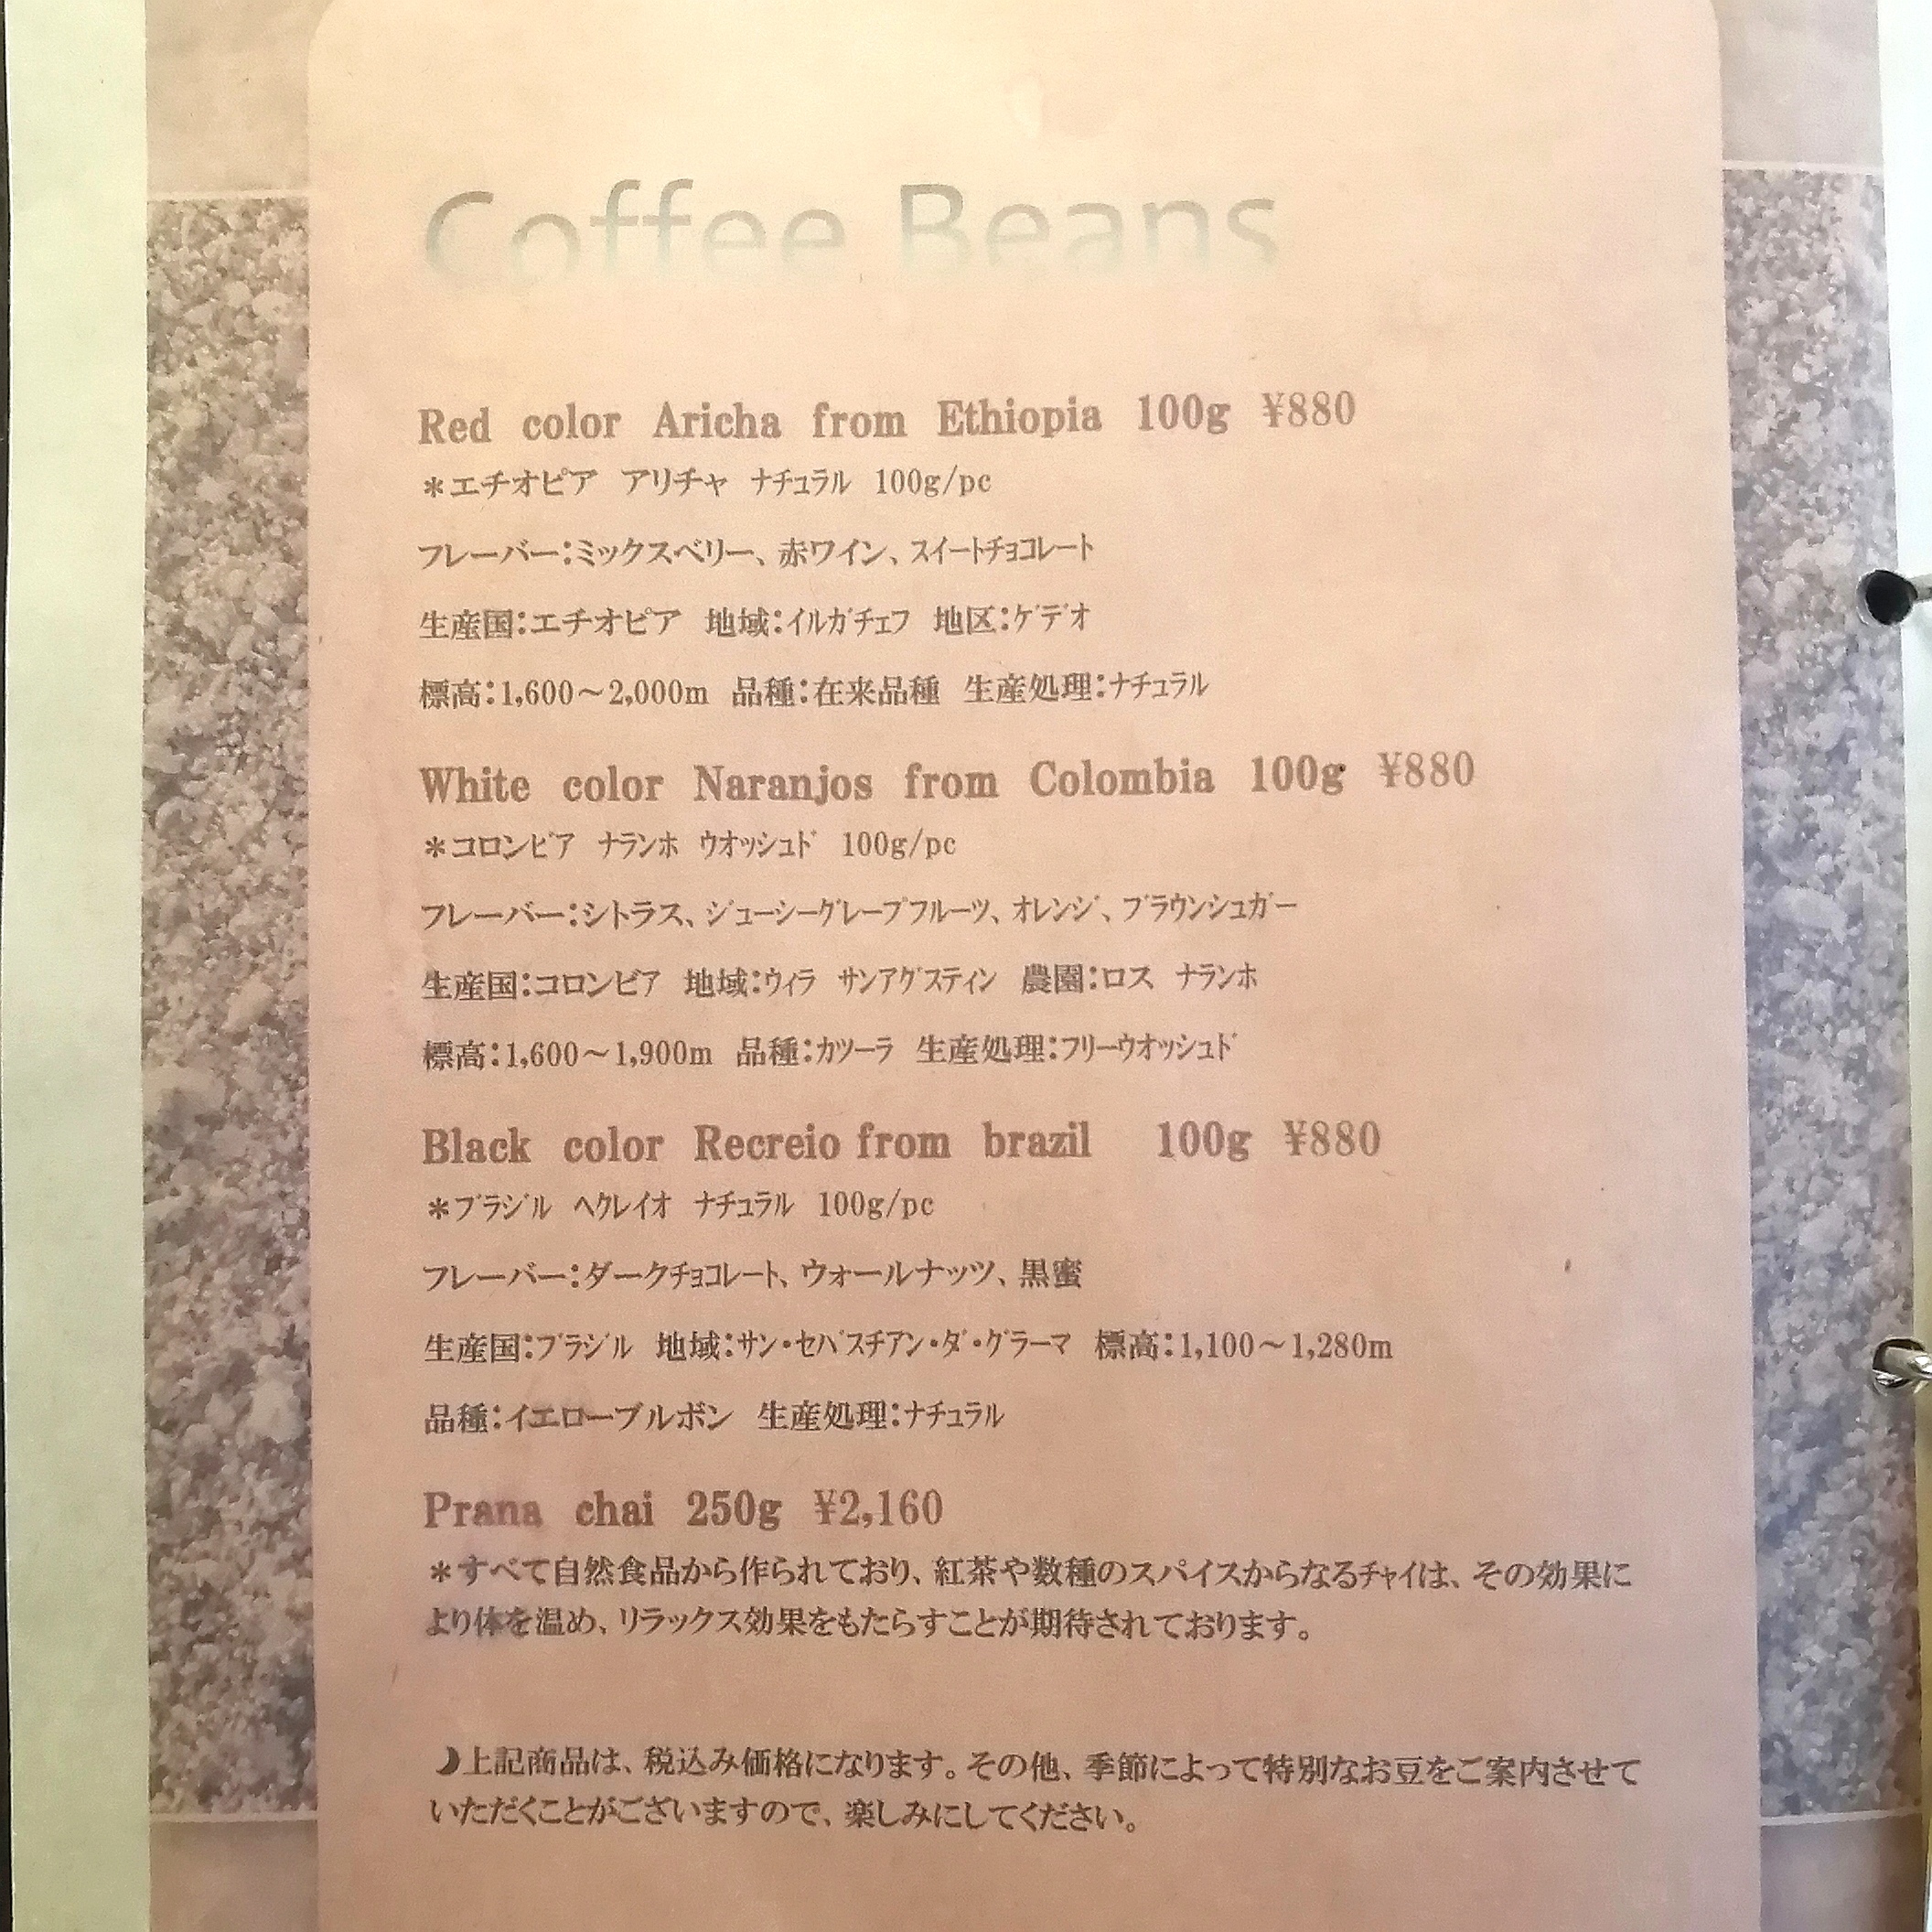 Coffee Beans
Red color Aricha from Ethiopia 100g ¥880
＊エチオピア アリチャ ﾅﾁｭﾗﾙ 100g/pc
フレーバー：ミックスベリー、赤ワイン、ｽｲｰﾄﾁｮｺﾚｰﾄ
生産国：エチオピア 地域：ｲﾙｶﾞﾁｪﾌ 地区：ｹﾞﾃﾞｵ
標高：1,600～2,000m 品種：在来品種 生産処理：ﾅﾁｭﾗﾙ
White color Naranjos from Colombia 100g ¥880
＊コロンビア ﾅﾗﾝﾎ ｳｵｯｼｭﾄﾞ 100g/pc
フレーバー：シトラス、ｼﾞｭｰｼｰｸﾞﾚｰﾌﾟﾌﾙｰﾂ、ｵﾚﾝｼﾞ、ﾌﾞﾗｳﾝｼｭｶﾞｰ
生産国：コロンビア 地域：ｳｨﾗ ｻﾝｱｸﾞｽﾃｨﾝ 農園：ロス ﾅﾗﾝﾎ
標高：1,600～1,900m 品種：ｶﾂｰﾗ 生産処理：ﾌﾘｰｳｵｯｼｭﾄﾞ
Black color Recreio from brazil 100g ¥880
＊ﾌﾞﾗｼﾞﾙ ﾍｸﾚｲｵ ﾅﾁｭﾗﾙ 100g/pc
フレーバー：ダークﾁｮｺﾚｰﾄ、ウォールナッツ、黒蜜
生産国：ﾌﾞﾗｼﾞﾙ 地域：ｻﾝ･ｾﾊﾞｽﾁｱﾝ･ﾀﾞ･ｸﾞﾗｰﾏ 標高：1,100～1,280m
品種：イエローブルボン 生産処理：ﾅﾁｭﾗﾙ
Prana chai 250g ¥2,160
＊すべて自然食品から作られており、紅茶や数種のスパイスからなるﾁｬｲは、その効果に
より体を温め、リラックス効果をもたらすことが期待されております。
上記商品は、税込み価格になります。その他、季節によって特別なお豆をご案内させて
いただくことがございますので、楽しみにしてください。